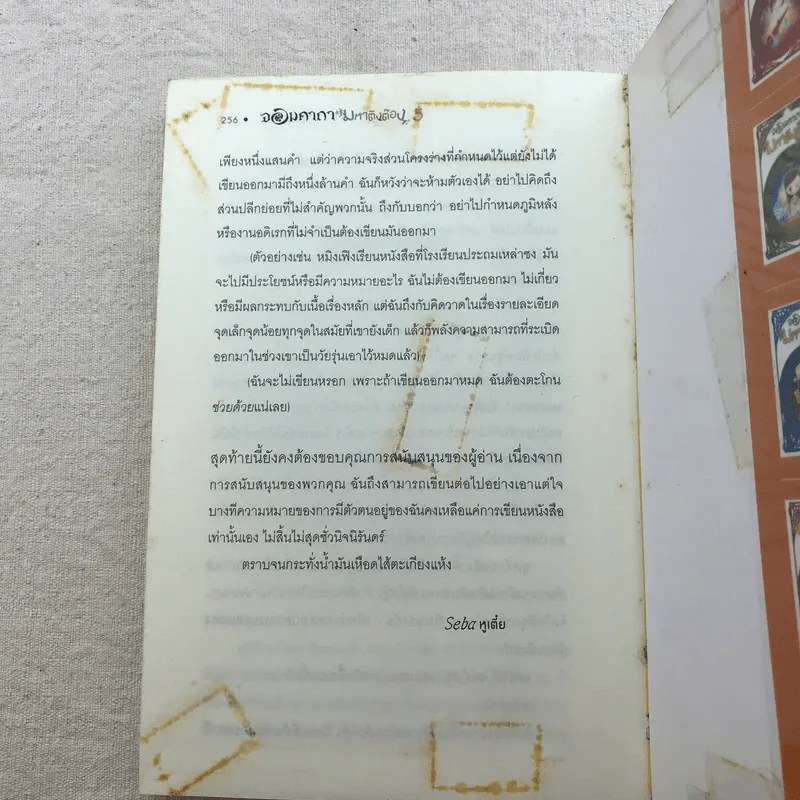 256 • จอมคาถามหาติงต๊อง 5
เพียงหนึ่งแสนคำ แต่ว่าความจริงส่วนโครงร่างที่กำหนดไว้แต่ยังไม่ได้
เขียนออกมามีถึงหนึ่งล้านคำ ฉันก็หวังว่าจะห้ามตัวเองได้ อย่าไปคิดถึง
ส่วนปลีกย่อยที่ไม่สำคัญพวกนั้น ถึงกับบอกว่า อย่าไปกำหนดภูมิหลัง
หรืองานอดิเรกที่ไม่จำเป็นต้องเขียนมันออกมา
(ตัวอย่างเช่น หมิงเฟิงเรียนหนังสือที่โรงเรียนประถมเหล่าซง มัน
จะไปมีประโยชน์หรือมีความหมายอะไร ฉันไม่ต้องเขียนออกมา ไม่เกี่ยว
หรือมีผลกระทบกับเนื้อเรื่องหลัก แต่ฉันถึงกับคิดวาดในเรื่องรายละเอียด
จุดเล็กจุดน้อยทุกจุดในสมัยที่เขายังเด็ก แล้วก็พลังความสามารถที่ระเบิด
ออกมาในช่วงเขาเป็นวัยรุ่นเอาไว้หมดแล้ว)
(ฉันจะไม่เขียนหรอก เพราะถ้าเขียนออกมาหมด ฉันต้องตะโกน
ช่วยด้วยแน่เลย)
สุดท้ายนี้ยังคงต้องขอบคุณการสนับสนุนของผู้อ่าน เนื่องจาก
การสนับสนุนของพวกคุณ ฉันถึงสามารถเขียนต่อไปอย่างเอาแต่ใจ
บางทีความหมายของการมีตัวตนอยู่ของฉันคงเหลือแค่การเขียนหนังสือ
เท่านั้นเอง ไม่สิ้นไม่สุดชั่วนิจนิรันดร์
ตราบจนกระทั่งน้ำมันเหือดไส้ตะเกียงแห้ง
Seba หูเตี๋ย